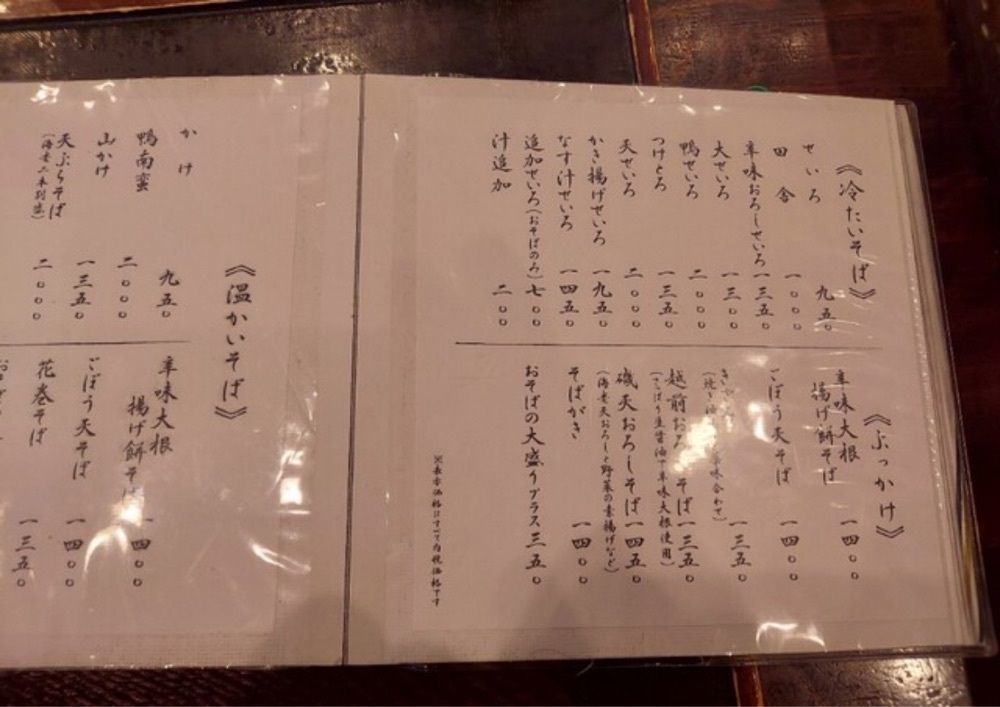 《冷たいそば》
せいろ 九五〇
田舎 一〇〇〇
辛味おろしせいろ 一三五〇
大せいろ 一三〇〇
鴨せいろ 二〇〇〇
つけとろ 一三五〇
天せいろ 二〇〇〇
かき揚げせいろ 一九五〇
なす汁せいろ 一四五〇
追加せいろ(おそばのみ) 七〇〇
汁追加 二〇〇
《ぶっかけ》
辛味大根
揚げ餅そば 一四〇〇
ごぼう天そば 一四〇〇
辛味合わせ) 一三五〇
越前おろしそば 一三五〇
(さっぱり生醤油で辛味大根使用)
磯天おろしそば 一四五〇
(海老天おろしと野菜の素揚げなど)
そばがき 一四〇〇
おそばの大盛りプラス三五〇
※表示価格はすべて内税価格です
《温かいそば》
かけ 九五〇
鴨南蛮 二〇〇〇
山かけ 一三五〇
天ぷらそば 二〇〇〇
(海老二本別盛)
辛味大根
揚げ餅そば 一四〇〇
ごぼう天そば 一四〇〇
花巻そば 一三五〇